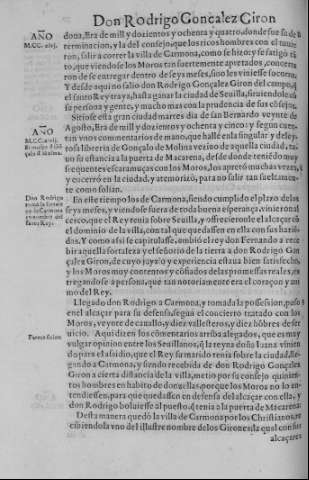 Don Rodrigo Gonçalez Giron
AÑO
M.CC.xlvj.
dona, Era de mill y dozientos y ochenta y quatro, donde fue su de
terminacion, y la del consejo que los ricos hombres con el tuuie
ron, salir a correr la villa de Carmona, como se hizo; y se fatigó tã
to, que viendose los Moros tan fuertemente apretados, concerta
ron de se entregar dentro de seys meses, sino les viniesse socorro.
Y desde aqui no salio don Rodrigo Gonçalez Giron del campo, q̃
el santo Rey traya, hasta ganar la ciudad de Seuilla, siruiendole cõ
su persona y gente, y mucho mas con la prudencia de sus cõsejos.
AÑO
M.CC.xlvij.
Sitiose esta gran ciudad martes dia de san Bernardo veynte de
Agosto, Era de mill y dozientos y ochenta y cinco: y segun cuen-
tan vnos commentarios de mano, que hallè en la singular y desseo
sa libreria de Gonçalo de Molina vezino de aquella ciudad, tu-
uo su estancia a la puerta de Macarena, desde donde teniendo muy
frequentes escaramuças con los Moros, los apretó muchas vezes,
y encerró en la ciudad, y atemorizó, para no salir tan sueltamen-
te como solian.
Don Rodrigo
En este tiempo los de Carmona, siendo cumplido el plazo de los
seys meses, y viendose fuera de toda buena esperança, vinieron al
cerco, que el Rey tenia sobre Seuilla, y offrecieronle el alcaçar cõ
el dominio de la villa, con tal que quedassen en ella con sus hazié
das. Y como assi se capitulasse, embió el rey don Fernando a rece
bir aquella fortaleza y el señorio de la tierra a don Rodrigo Gon
çalez Giron, de cuyo juyzio y experiencia estaua bien satisfecho,
y los Moros muy contentos y cõfiados de las promessas reales, en
tregandose a persona, que tan notoriamente era el coraçon y ani
mo del Rey.
Llegado don Rodrigo a Carmona, y tomada la possession, puso
en el alcaçar para su defensa, segun el concierto tratado con los
Moros, veynte de cauallo, y diez vallesteros, y diez hõbres de ser
uicio. Aqui dizen los comentarios arriba alegados, que es muy
vulgar opinion entre los Seuillanos, q̃ la reyna doña Iuana vinien
do para el assidio, que el Rey su marido tenia sobre la ciudad, lle-
gando a Carmona, y siendo recebida de don Rodrigo Gonçalez
Giron a cierta distancia de la villa, metio por su consejo quinien-
tos hombres en habito de donzellas, porque los Moros no lo en-
tendiessen, para que quedassen en defensa del alcaçar con ella, y
don Rodrigo boluiesse al puesto, q̃ tenia a la puerta de Macarena
Desta manera quedó la villa de Carmona por los Christianos, re
cibiendola vno del illustre nombre de los Girones, la qual con sus
alcaçares